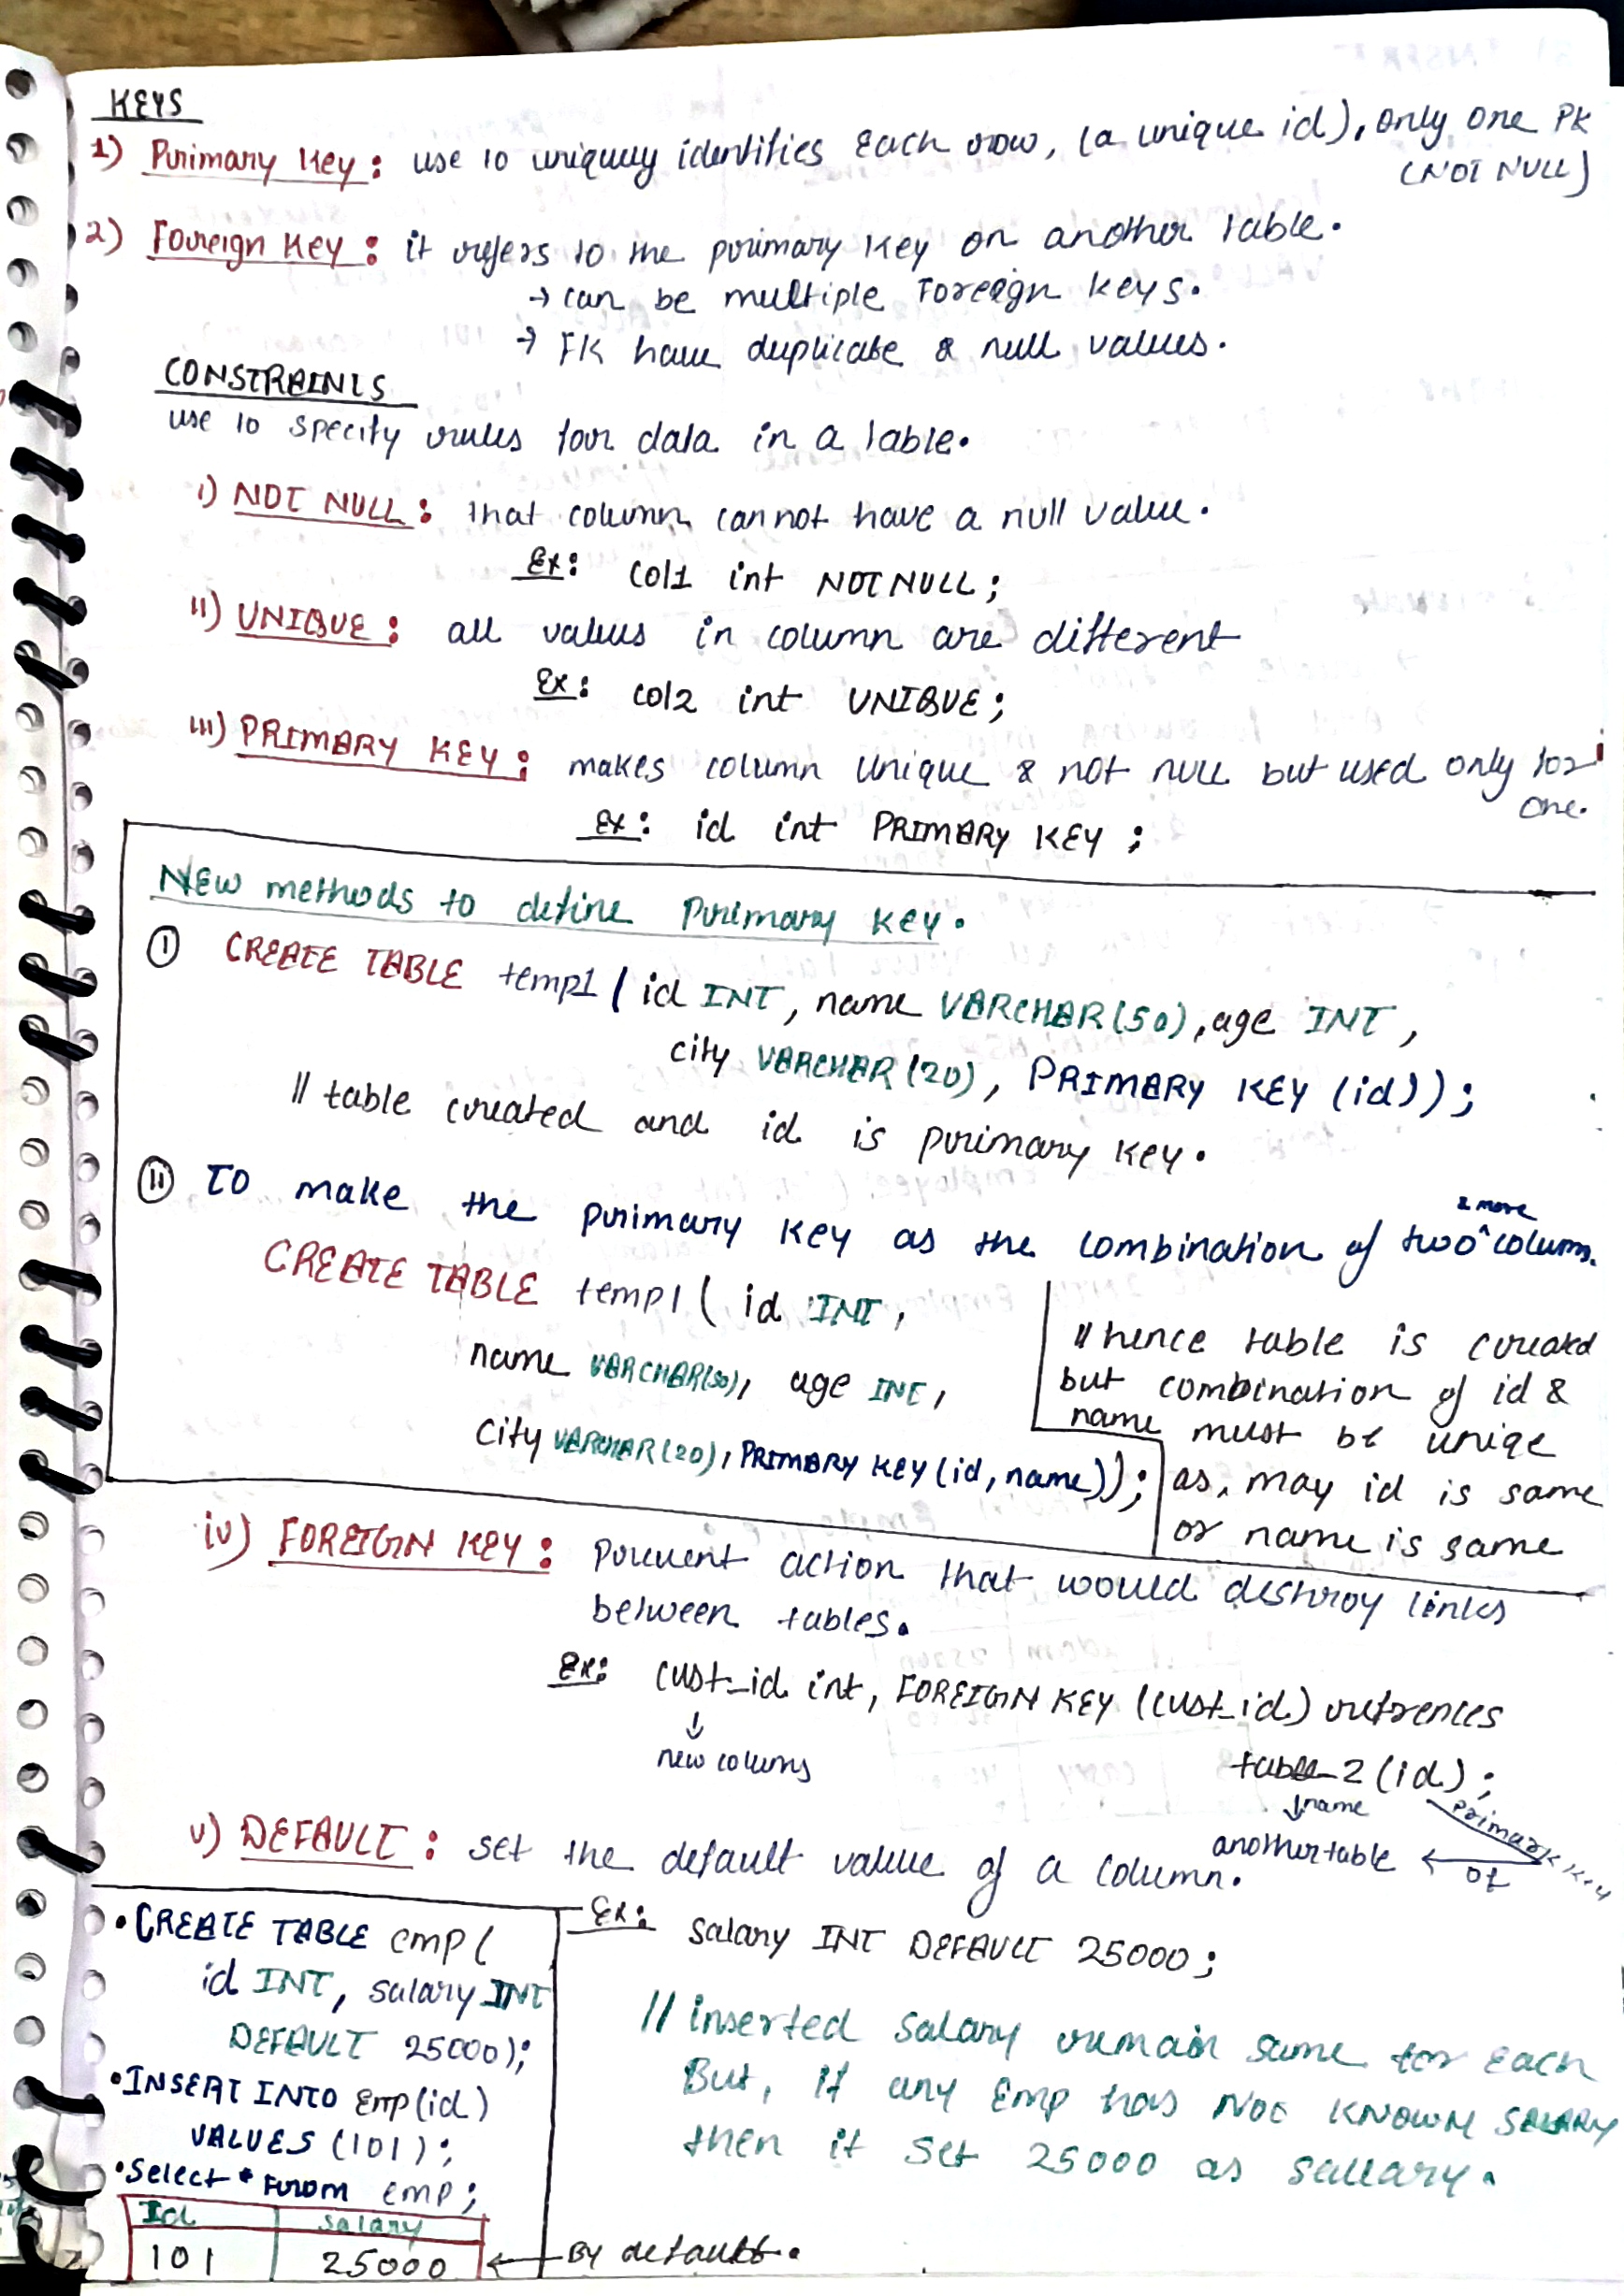 KEYS
1) Primary Key : use to uniquely identifies Each row, (a unique id), only one PK
(NOT NULL)
2) Foreign Key : it refers to the primary key on another table.
→ can be multiple Foreign keys.
→ FK have duplicate & null values.
CONSTRAINTS
use to specify rules for data in a table.
i) NOT NULL : that column cannot have a null value.
Ex: col1 int NOT NULL ;
ii) UNIQUE : all values in column are different
Ex: col2 int UNIQUE ;
iii) PRIMARY KEY : makes column unique & not null but used only for
one.
Ex: id int PRIMARY KEY ;
New methods to define Primary Key.
I CREATE TABLE temp1 ( id INT, name VARCHAR(50), age INT,
city VARCHAR(20), PRIMARY KEY (id));
// table created and id is primary key.
II To make the primary key as the combination of two & more colums.
CREATE TABLE temp1 ( id INT,
name VARCHAR(50), age INT,
city VARCHAR(20), PRIMARY KEY (id, name));
// hence table is created
but combination of id &
name must be uniqe
as, may id is same
or name is same
iv) FOREIGN KEY : prevent action that would destroy links
between tables.
Ex: cust_id int, FOREIGN KEY (cust_id) references
table 2 (id) ;
↓
new colums
↓ name
another table ← of primary key
v) DEFAULT : set the default value of a column.
Ex: salary INT DEFAULT 25000 ;
// inserted salary remain same for each
But, if any Emp has Not KNOWN SALARY
then it set 25000 as sallary.
• CREATE TABLE emp (
id INT, salary INT
DEFAULT 25000);
• INSERT INTO Emp(id)
VALUES (101) ;
• Select * From emp ;
Id salary
101 25000 ← By default.